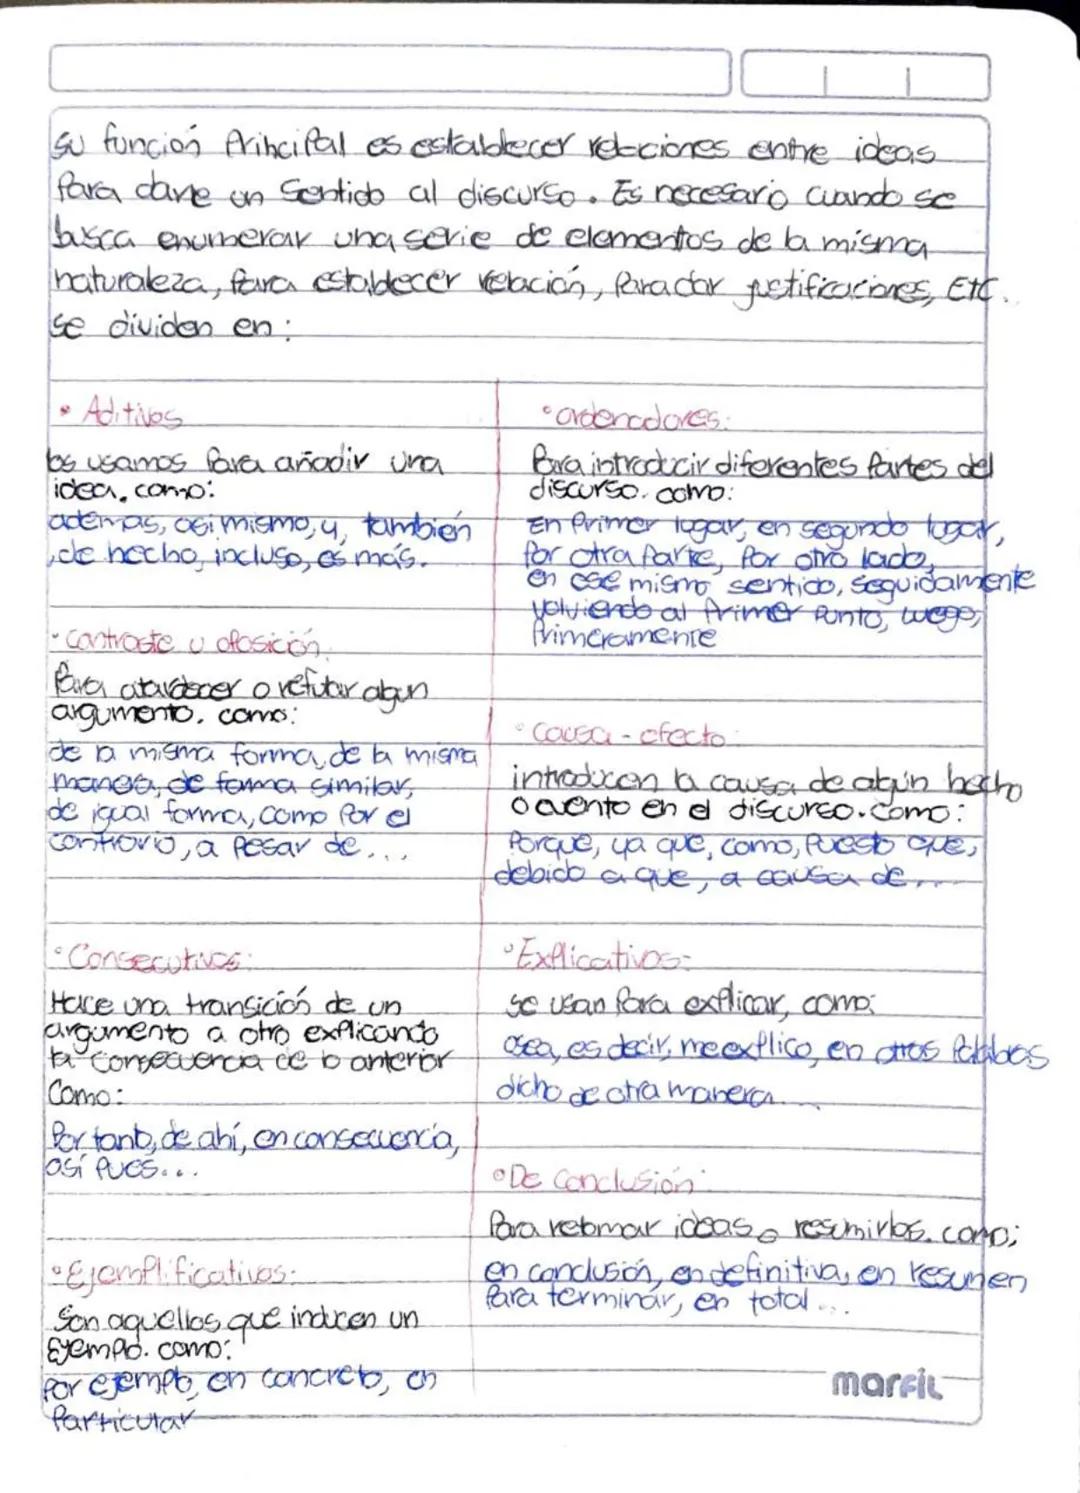 su función Principal es establecer relaciones entre ideas
Para darle un Sentido al discurso. Es necesario cuando se
busca enumerar una serie de elementos de la misma
naturaleza, para establecer relación, Para dar justificaciones, Etc.
se dividen en:
• Aditivos
los usamos Para añadir una
idea. como:
además, asi mismo, y, también
, de hecho, incluso, es más.
• contraste u oposición
Para o refutar algun
argumento. como:
de la misma forma, de la misma
manera, de forma similar,
de igual forma, como Por el
contrario, a Pesar de...
• Consecutivos:
Hace una transición de un
argumento a otro explicando
la consecuencia de lo anterior
Como:
Por tanto, de ahí, en consecuencia,
así Pues...
• Ejemplificativos:
Son aquellos que inducen un
Ejemplo. como:
Por ejemplo, en concreto, en
Particular
• ordenadores:
Para introducir diferentes Partes del
discurso. como:
En Primer lugar, en segundo lugar,
Por otra Parte, Por otro lado,
en ese mismo sentido, seguidamente
volviendo al Primer Punto, luego,
Primeramente
• Causa - efecto:
introducen la causa de algún hecho
o evento en el discurso. como:
Porque, ya que, como, Puesto que,
debido a que, a causa de...
• Explicativos:
se usan Para explicar, como:
osea, es decir, me explico, en otras Palabras
dicho de otra manera...
• De Conclusión:
Para retomar ideas o resumirlas. como:
en conclusión, en definitiva, en resumen
Para terminar, en total...
marfil